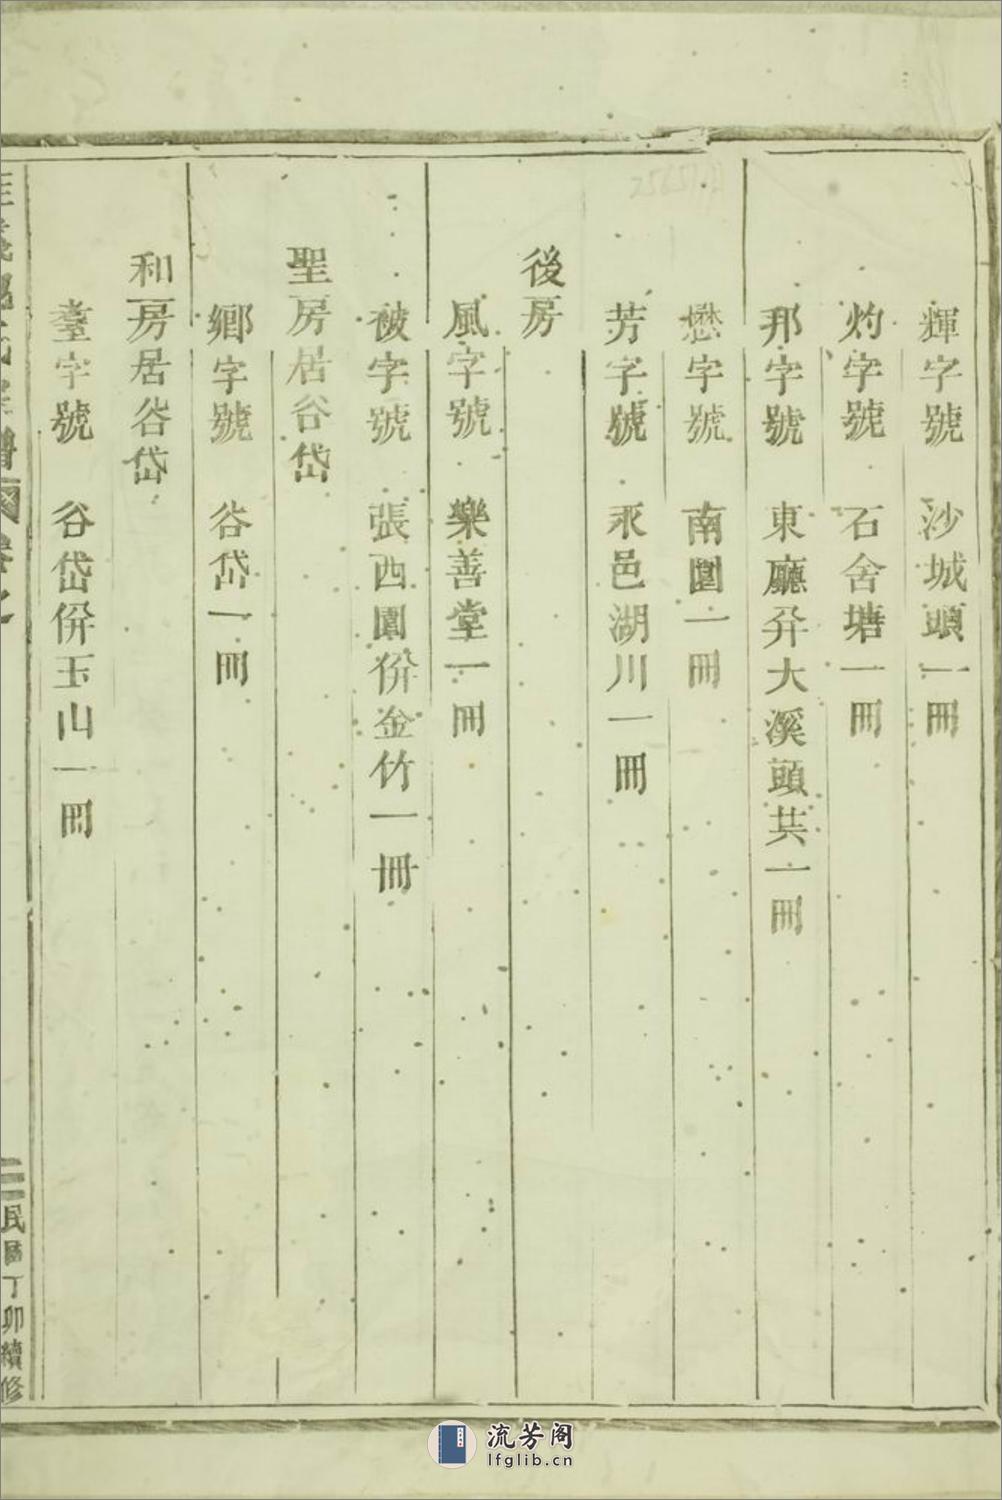 輝字號　沙城頭一冊
灼字號　石舍塘一冊
邦字號　東廳幷大溪頭共一冊
懋字號　南園一冊
芳字號　永邑湖川一冊
後房
風字號　樂善堂一冊
被字號　張西園併金竹一冊
聖房居谷岱
鄉字號　谷岱一冊
和房居谷岱
臺字號　谷岱併玉山一冊
民國丁卯續修
流芳阁
lfglib.cn